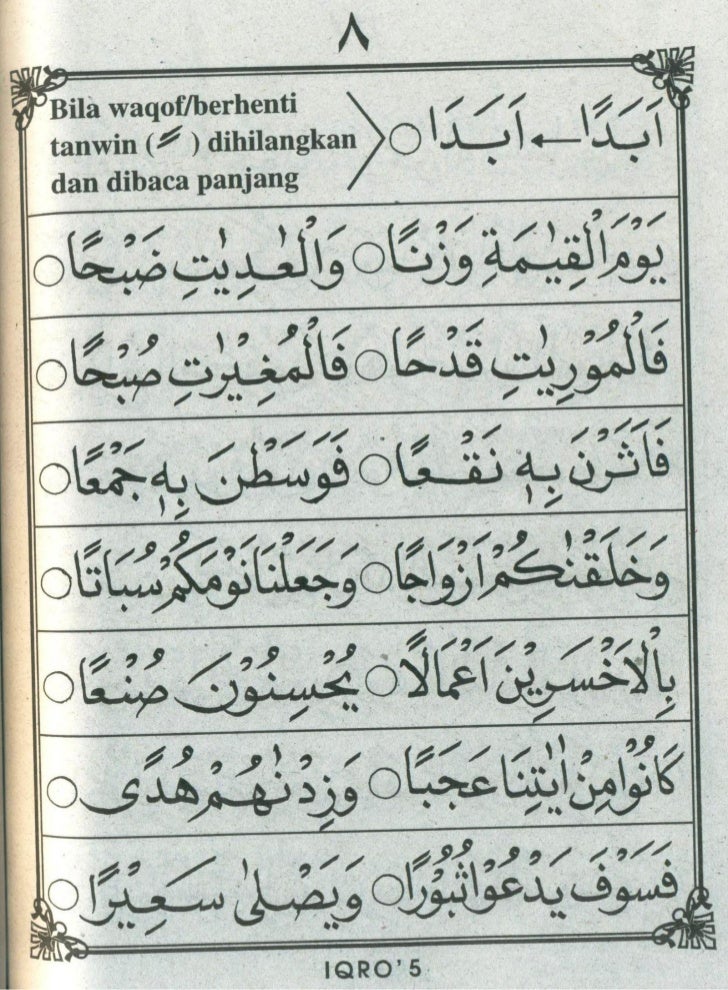 ٨
Bila waqof/berhenti
tanwin ( ـً ) dihilangkan
dan dibaca panjang
اَبَدًا ← اَبَدَا ○
يَوْمَ الْقِيٰمَةِ وَزْنًا ○ وَالْعٰدِيٰتِ ضَبْحًا ○
فَالْمُوْرِيٰتِ قَدْحًا ○ فَالْمُغِيْرٰتِ صُبْحًا ○
فَاَثَرْنَ بِهٖ نَقْعًا ○ فَوَسَطْنَ بِهٖ جَمْعًا ○
وَخَلَقْنٰكُمْ اَزْوَاجًا ○ وَجَعَلْنَا نَوْمَكُمْ سُبَاتًا ○
بِالْاَخْسَرِيْنَ اَعْمَالًا ○ يُحْسِنُوْنَ صُنْعًا ○
كَانُوْا مِنْ اٰيٰتِنَا عَجَبًا ○ وَزِدْنٰهُمْ هُدًى ○
فَسَوْفَ يَدْعُوْا ثُبُوْرًا ○ وَيَصْلٰى سَعِيْرًا ○
IQRO'5